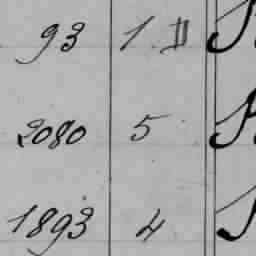 93 1 II
2080 5
1893 4